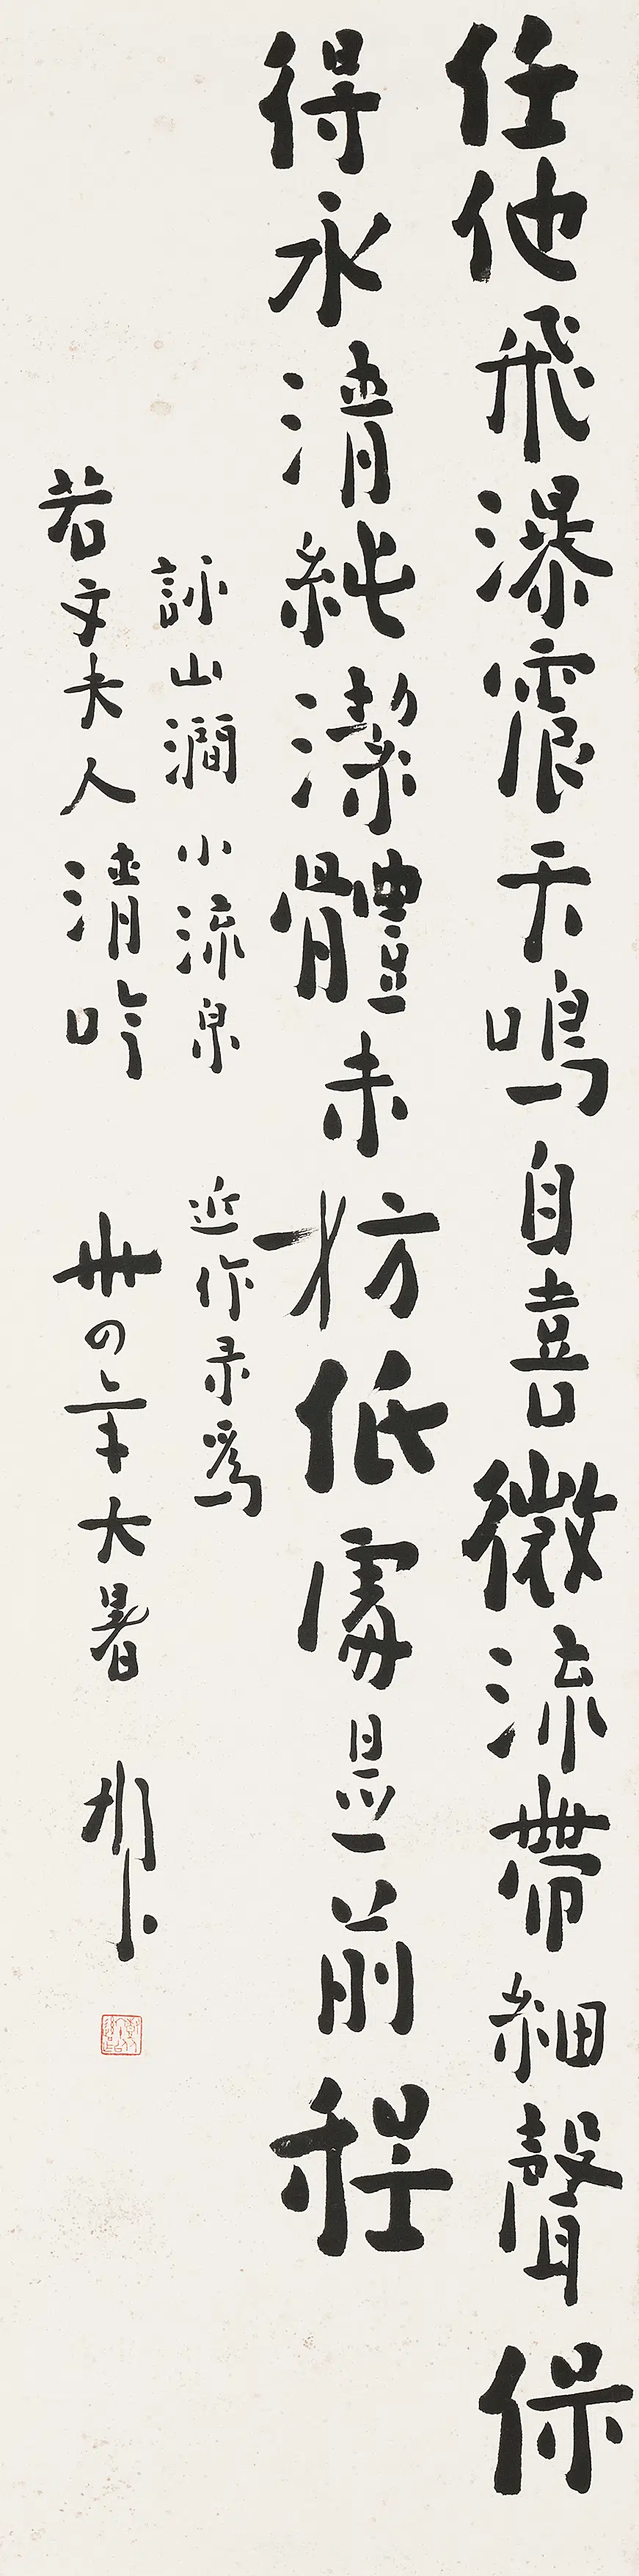 任他飛瀑震天鳴自喜微流帶細聲保
得永清純潔體未妨低處是前程
詠山澗小流泉 近作录為
若文夫人清吟 卅四年大暑